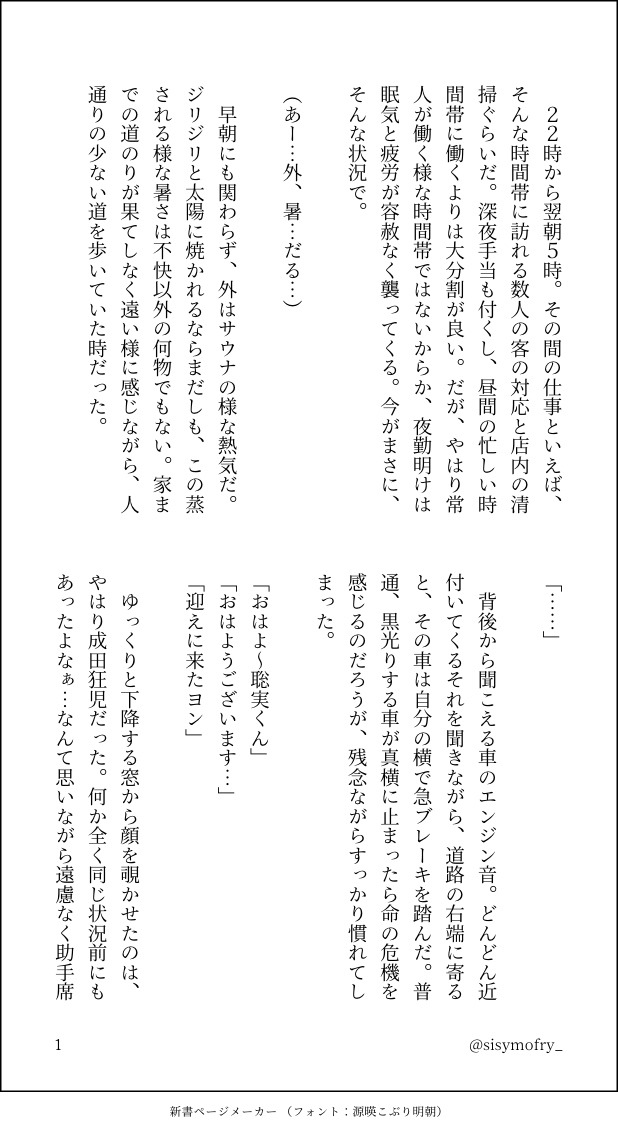 ２２時から翌朝５時。その間の仕事といえば、
そんな時間帯に訪れる数人の客の対応と店内の清
掃ぐらいだ。深夜手当も付くし、昼間の忙しい時
間帯に働くよりは大分割が良い。だが、やはり常
人が働く様な時間帯ではないからか、夜勤明けは
眠気と疲労が容赦なく襲ってくる。今がまさに、
そんな状況で。
（あー…外、暑…だる…）
早朝にも関わらず、外はサウナの様な熱気だ。
ジリジリと太陽に焼かれるならまだしも、この蒸
される様な暑さは不快以外の何物でもない。家ま
での道のりが果てしなく遠い様に感じながら、人
通りの少ない道を歩いていた時だった。
「……」
背後から聞こえる車のエンジン音。どんどん近
付いてくるそれを聞きながら、道路の右端に寄る
と、その車は自分の横で急ブレーキを踏んだ。普
通、黒光りする車が真横に止まったら命の危機を
感じるのだろうが、残念ながらすっかり慣れてし
まった。
「おはよ〜聡実くん」
「おはようございます…」
「迎えに来たヨン」
ゆっくりと下降する窓から顔を覗かせたのは、
やはり成田狂児だった。何か全く同じ状況前にも
あったよなぁ…なんて思いながら遠慮なく助手席
1
@sisymofry_
新書ページメーカー（フォント：源暎こぶり明朝）